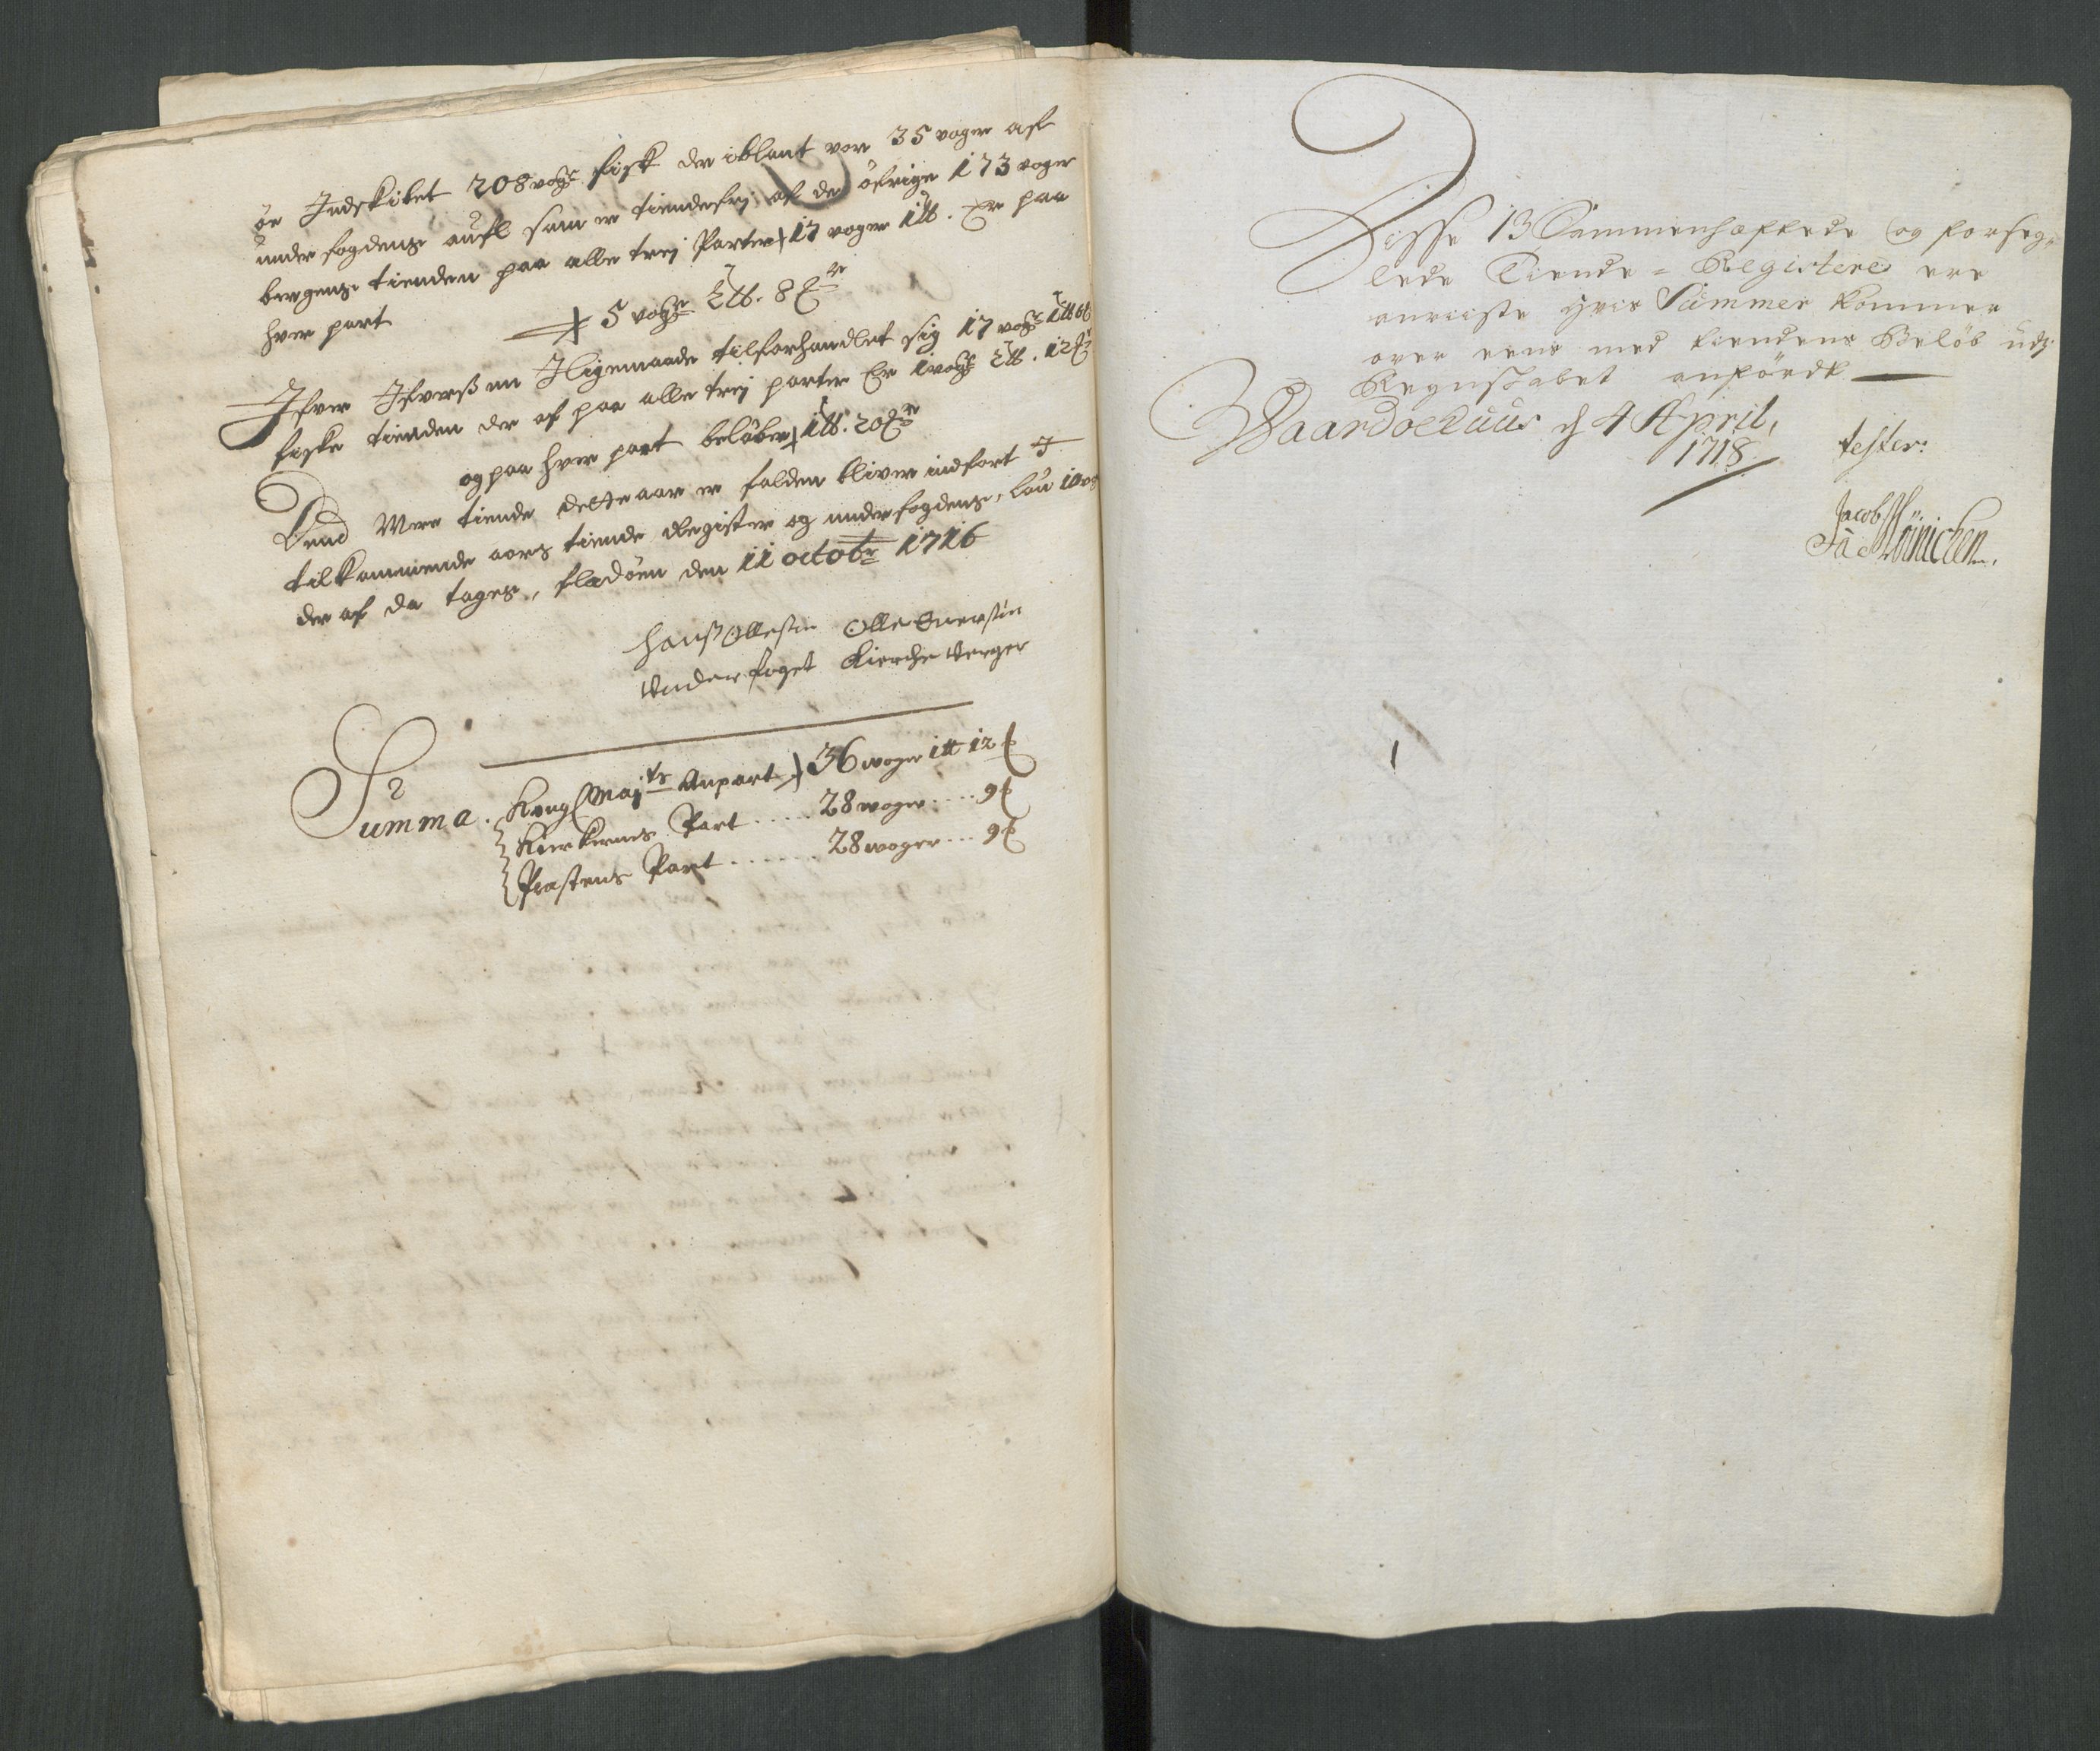 ör Indskibet 208 voger fisk der iblant var 35 voger af
underfogdens aufl som er tiendefrj af de öfrige 173 voger
bergens tienden paa alle trej Parter 17 voger 1 ℔. Er paa
hver part 5 voger 2 ℔. 8
Ifver Ifverßøn Iligemaade tilforhandlet sig 17 voger 1 ℔
fiske tienden der af paa alle trej parter Er 1 vog 2 ℔. 12
og paa hver part beløber 1 ℔. 20
Hvad Mere tiende dette aar er falden bliver indført J
tilkommende aars tiende Register og underfogdens, lön
der af da tages, fladöen den 11 octobr 1716
Hanß Ollesøn Olle Enersøn
Underfoget Kierche Verger
Summa. Kongl Mayts Anpart 36 woger 1 ℔ 12
Kierkernes Part ..... 28 woger .... 9
Præstens Part ....... 28 woger ... 9
Disse 13 Sammenhæftede og forseg-
lede Tiende-Registere ere
anviiste hvis Summer kommer
over eens med tiendens Beløb udj
Regnskabet anfördt
Waardoehuus d 4 April,
1718.
tester:
Jacob
Mönichen.